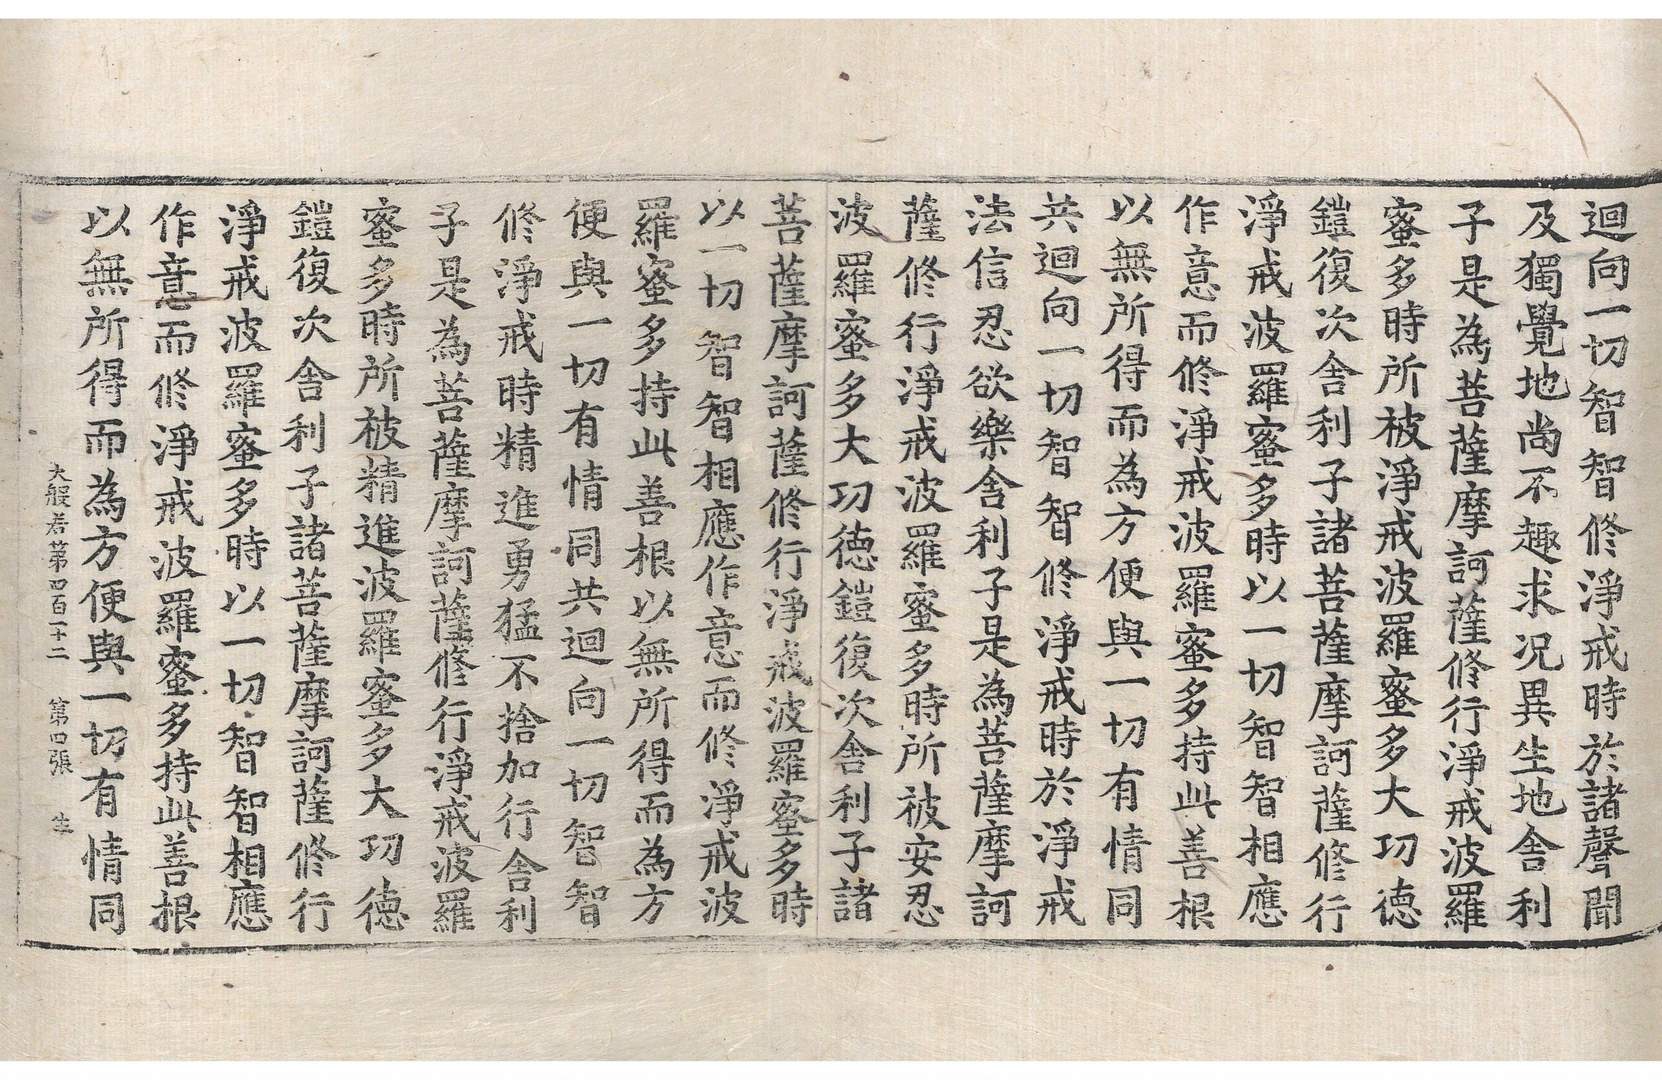 迴向一切智智修淨戒時於諸聲聞
及獨覺地尚不趣求况異生地舍利
子是為菩薩摩訶薩修行淨戒波羅
蜜多時所被淨戒波羅蜜多大功德
鎧復次舍利子諸菩薩摩訶薩修行
淨戒波羅蜜多時以一切智智相應
作意而修淨戒波羅蜜多持此善根
以無所得而為方便與一切有情同
共迴向一切智智修淨戒時於淨戒
法信忍欲樂舍利子是為菩薩摩訶
薩修行淨戒波羅蜜多時所被安忍
波羅蜜多大功德鎧復次舍利子諸
菩薩摩訶薩修行淨戒波羅蜜多時
以一切智智相應作意而修淨戒波
羅蜜多持此善根以無所得而為方
便與一切有情同共迴向一切智智
修淨戒時精進勇猛不捨加行舍利
子是為菩薩摩訶薩修行淨戒波羅
蜜多時所被精進波羅蜜多大功德
鎧復次舍利子諸菩薩摩訶薩修行
淨戒波羅蜜多時以一切智智相應
作意而修淨戒波羅蜜多持此善根
以無所得而為方便與一切有情同
大般若第四百一十二 第四張